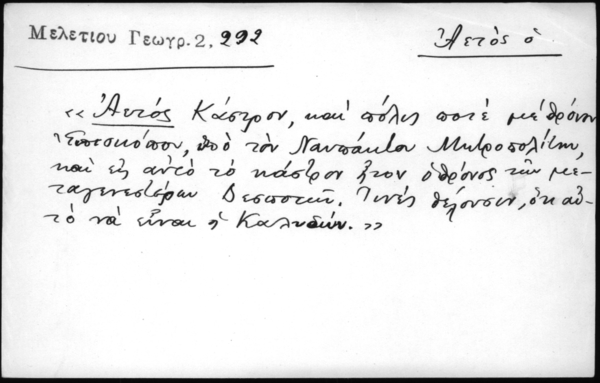 Μελετίου Γεωγρ. 2, 292
Ἀετὸς ὁ
«Ἀετός Κάστρον, καὶ πόλις ποτὲ μὲ θρόνον
Ἐπισκόπου, ὑπὸ τὸν Ναυπάκτου Μητροπολίτην,
καὶ εἰς αὐτὸ τὸ κάστρον ἦτον ὁ θρόνος τῶν με-
ταγενεστέρων Δεσποτῶν. Τινὲς θέλουσιν, ὅτι αὐ-
τὸ νὰ εἶναι ἡ Καλυδών.»